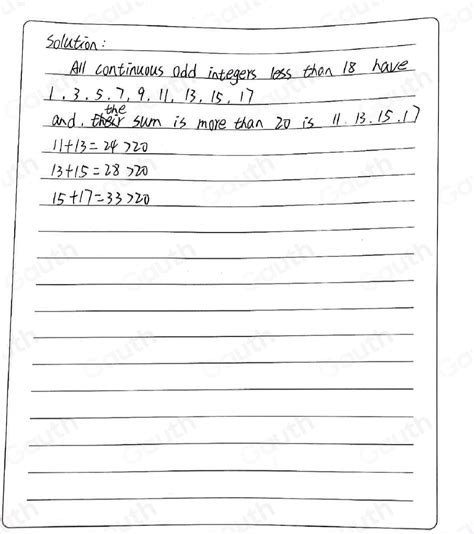 Solution:
All continuous odd integers less than 18 have
1.3.5.7.9.11.13.15.17
the
and. their sum is more than 20 is 11.13.15.17
11+13=24>20
13+15=28>20
15+17=33>20
Gauth